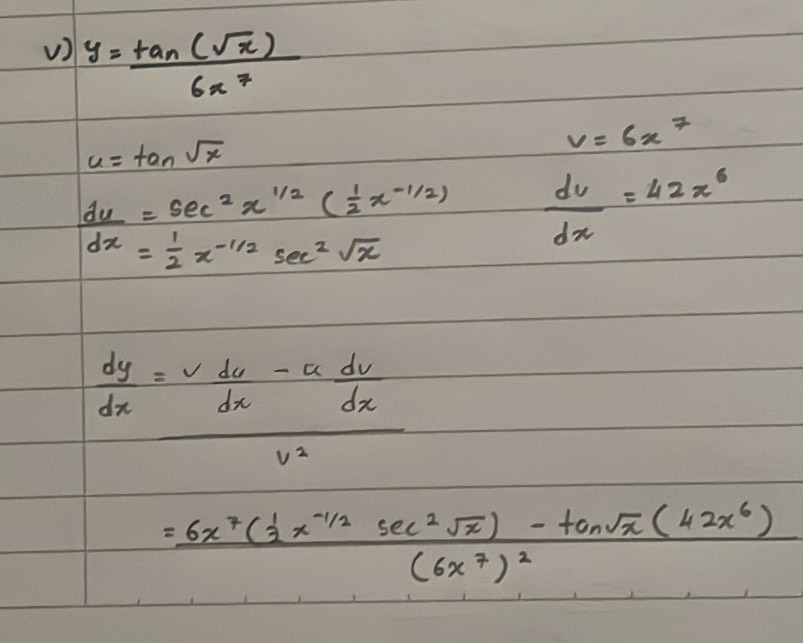 v) y = tan (√x)
6x⁷
u = tan √x
v = 6x⁷
du/dx = sec² x^1/2 (1/2 x^-1/2)
dv/dx = 42x⁶
= 1/2 x^-1/2 sec² √x
dy/dx = v du/dx - u dv/dx
v²
= 6x⁷ (1/2 x^-1/2 sec² √x) - tan√x (42x⁶)
(6x⁷)²